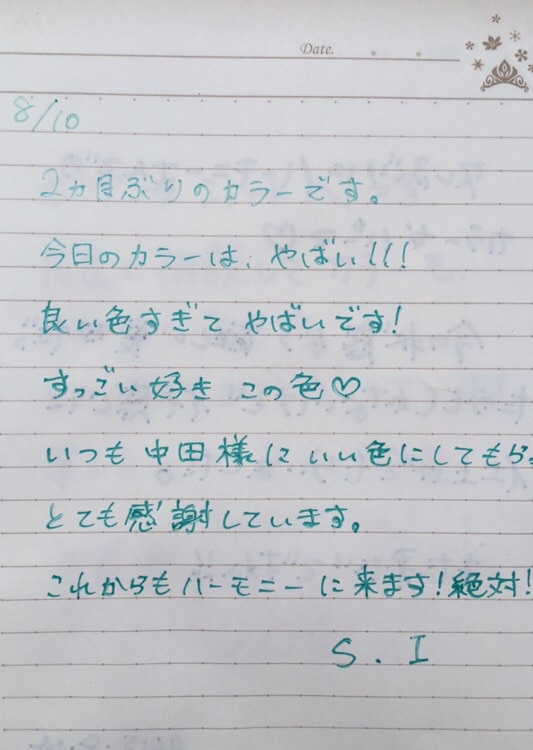 Date.
8/10
2ヵ月ぶりのカラーです。
今日のカラーは、やばい!!!
良い色すぎて やばいです!
すっごい好き この色♡
いつも 中田様に いい色にしてもら
とても感謝しています。
これからもハーモニーに来ます!絶対!
S.I